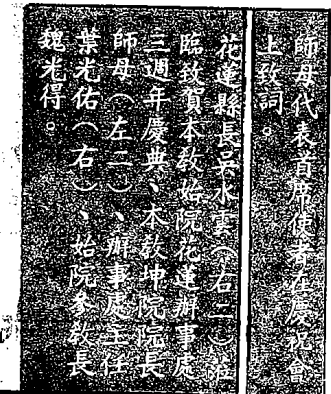 師母代表首席使者在慶祝會
上致詞。
花蓮縣長吳水雲（右二）蒞
臨致賀本教始院花蓮辦事處
三週年慶典、本教坤院院長
師母（左二）、辦事處主任
葉光佑（右）、始院參教長
魏光得。